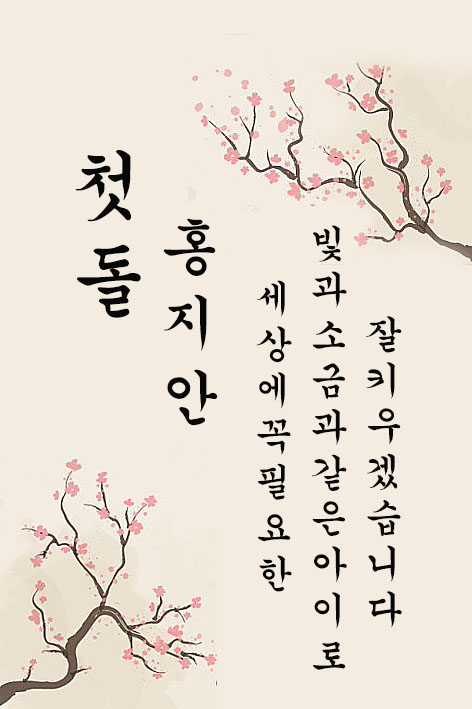 첫돌
홍지안
세상에꼭필요한
빛과소금과같은아이로
잘키우겠습니다